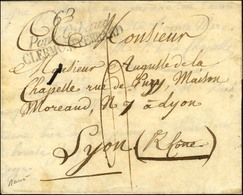 Monsieur
CLERMONT-FERRAND
Monsieur Auguste de la
Chapelle rue de Puzy, Maison
Moreaud, N 7 à Lyon
Lyon (Rhône)